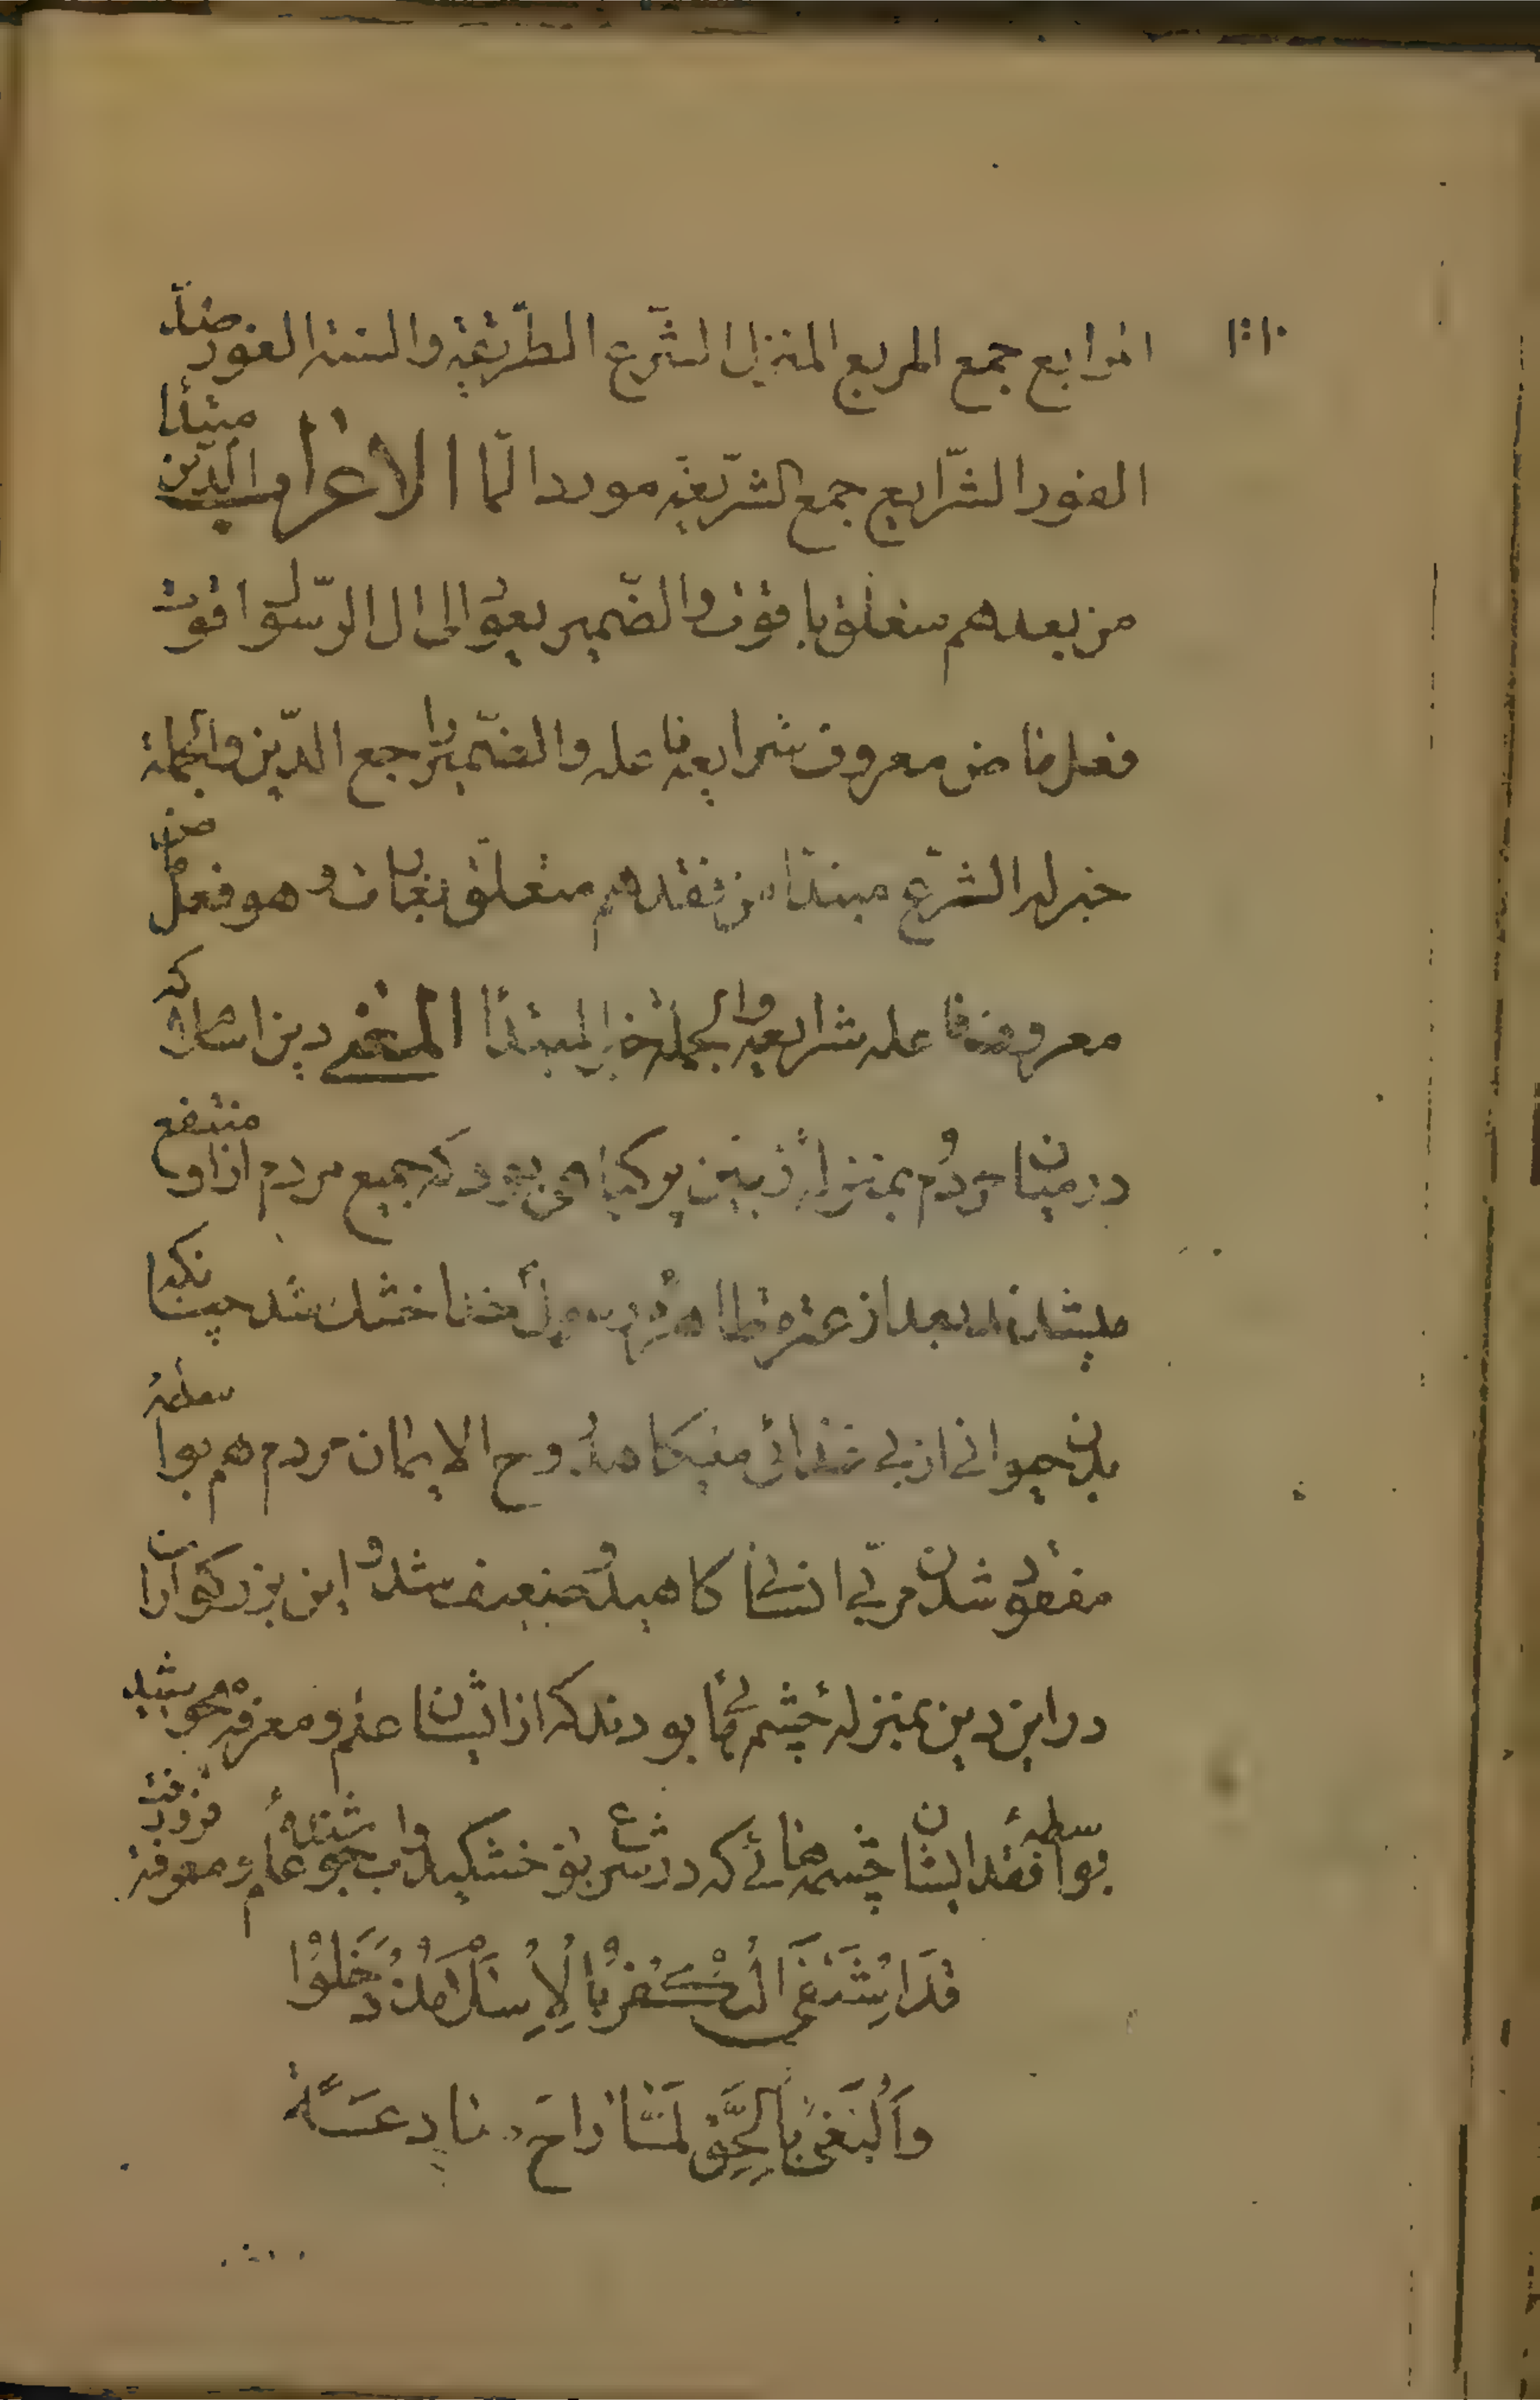 المرابع جمع المربع المنزل الشّرع الطّريقة والسنة الغور ضدّ
الغور الشّرايع جمع الشّريعة مورد المآ الاعراب الدّين مبتدأ
من بعدهم متعلق باقوت والضمير يعود الى ال الرّسول اقوت
فعل ماض معروف شرايعه فاعله والضّمير راجع الدّين والجملة
خبر له الشّرع مبتدا من فقدهم متعلّق بغارت وهو فعل ماض
معروف فاعله شرايعه والجملة خبر المبتدأ المعنى دين اسلام كه
در ميان مردم بمنزلۀ زمين پر كياهى بود كه جميع مردم از او منتفع
ميشدند بعد از عترة طاهره رسول خدا خشك شد چنانكه
بدن حيوانى از بى غذائى ميكاهد روح الايمان مردم هم بواسطه
مفقود شدن مربّى انسانى كاهيد وضعيف شد و اين بزركواران
در اين دين بمنزلۀ چشمهائى بودند كه از ايشان علم و معرفة ميجوشيد
بواسطۀ فقد ايشان چشمه هائى كه در شرع بود خشكيد واب جو علم و معرفة فرو رفت
قَدَ اشْتَفَى الْكُفْرُ بِالْاِسْلَامِ مُذْ دَخَلُوْا
وَالْبَغْىُ بِالْحَقِّ لَمَّا رَاحَ